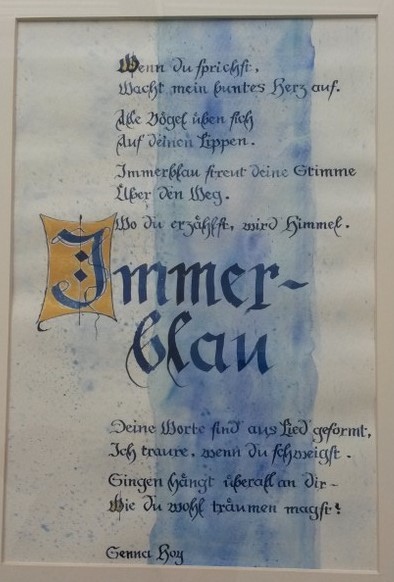 Wenn du sprichst,
Wacht mein buntes Herz auf.
Alle Vögel üben sich
Auf deinen Lippen.
Immerblau streut deine Stimme
Über den Weg.
Wo du erzählst, wird Himmel.
Immer-
blau
Deine Worte sind aus Lied geformt,
Ich traure, wenn du schweigst.
Singen hängt überall an dir –
Wie du wohl träumen magst?
Senna Hoy